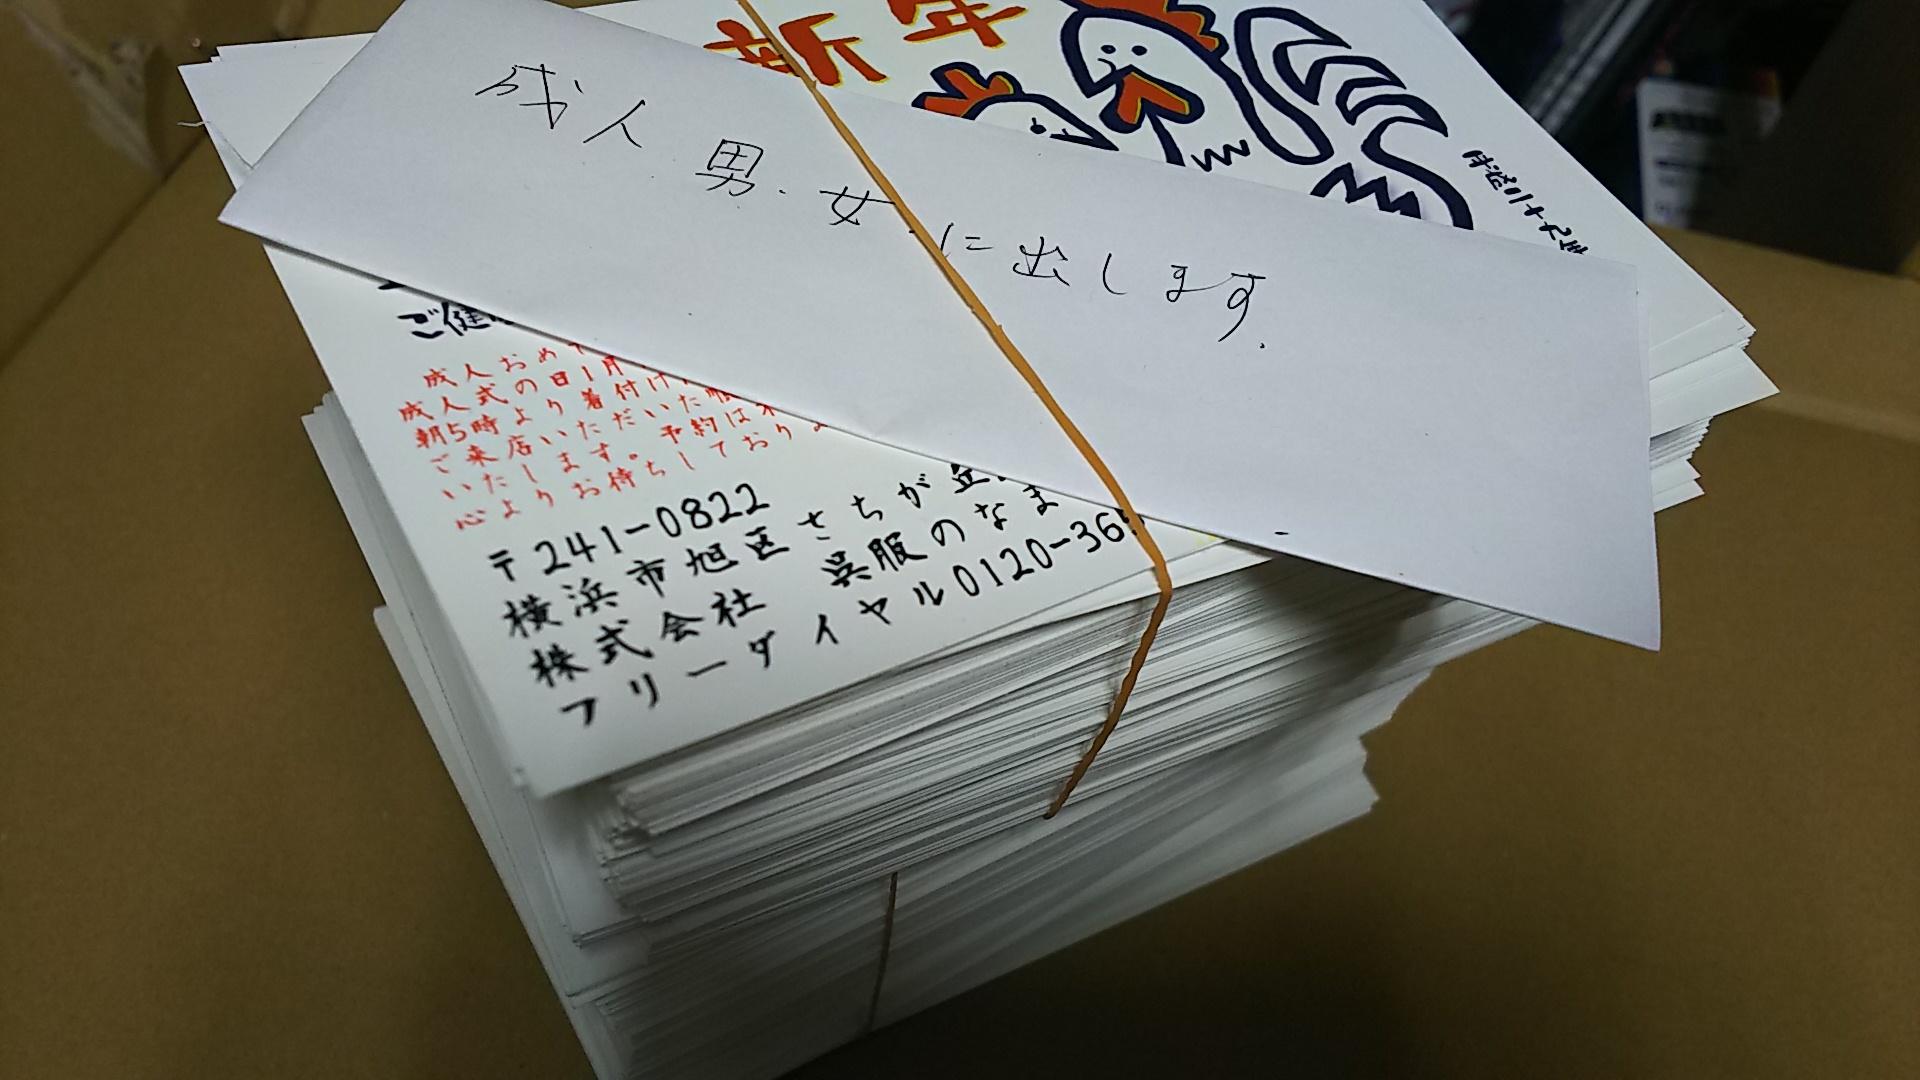 新年
平成二十九年
成人男・女に出します.
ご健
成人おめ
成人式の日1月
朝5時より着付け
ご来店いただいた
いたします。予約は
心よりお待ちしており
〒241-0822
横浜市旭区さちが丘
株式会社 呉服のなま
フリーダイヤル0120-36